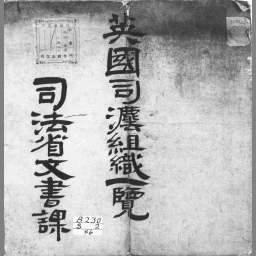 英國司灋組織一覽
司法省文書課
B230
S 2